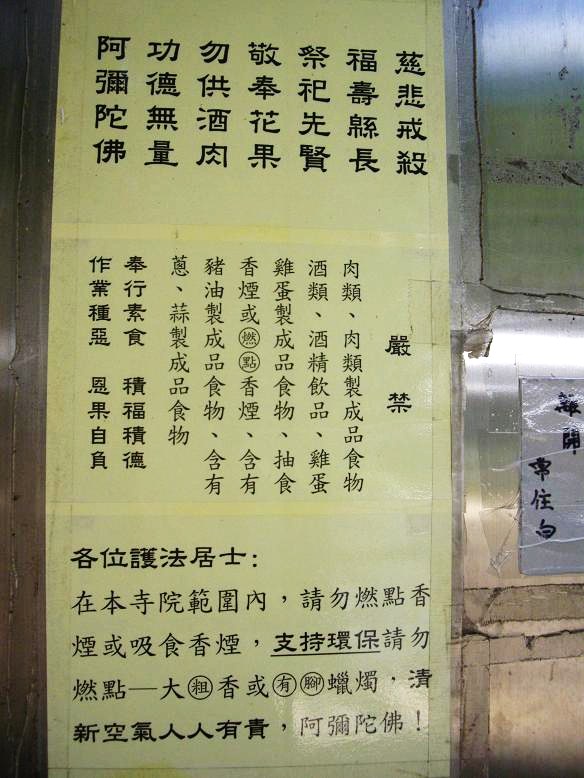 慈悲戒殺
福壽縣長
祭祀先賢
敬奉花果
勿供酒肉
功德無量
阿彌陀佛
嚴禁
肉類、肉類製成品食物
酒類、酒精飲品、雞蛋
雞蛋製成品食物、抽食
香煙或燃點香煙、含有
豬油製成品食物、含有
蔥、蒜製成品食物
奉行素食 積福積德
作業種惡 恩果自負
各位護法居士:
在本寺院範圍內，請勿燃點香
煙或吸食香煙，支持環保請勿
燃點—大粗香或有腳蠟燭，清
新空氣人人有責，阿彌陀佛！
離開
常住白